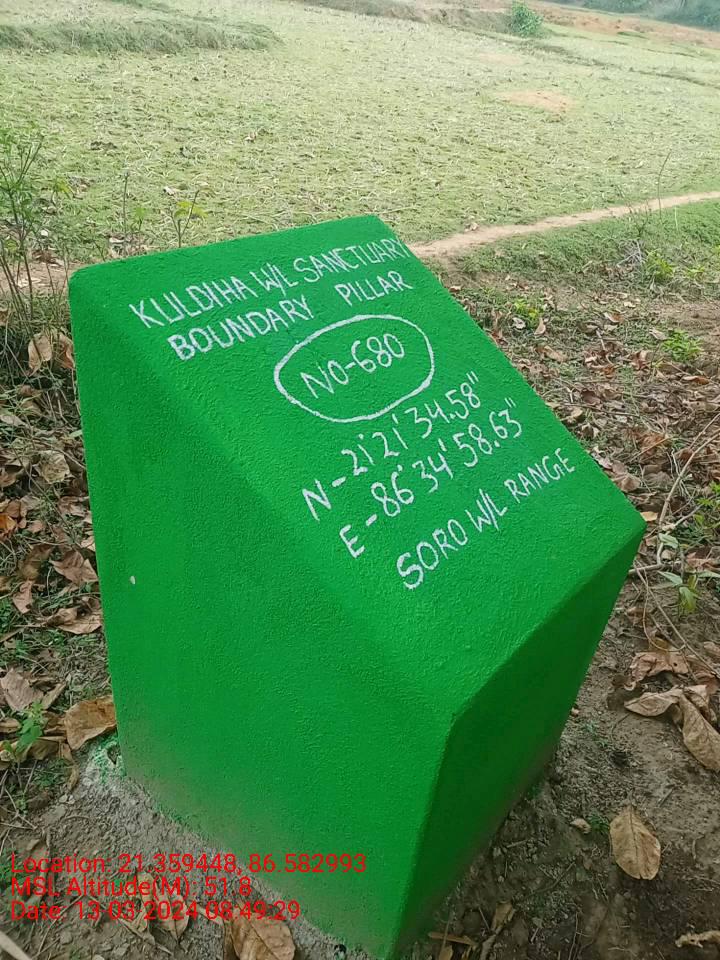 KULDIHA W/L SANCTUARY
BOUNDARY PILLAR
NO-680
N-21°21'34.58"
E-86°34'58.63"
SORO W/L RANGE
Location: 21.359448, 86.582993
MSL Altitude(M): 51.8
Date: 13-03-2024 08:49:29